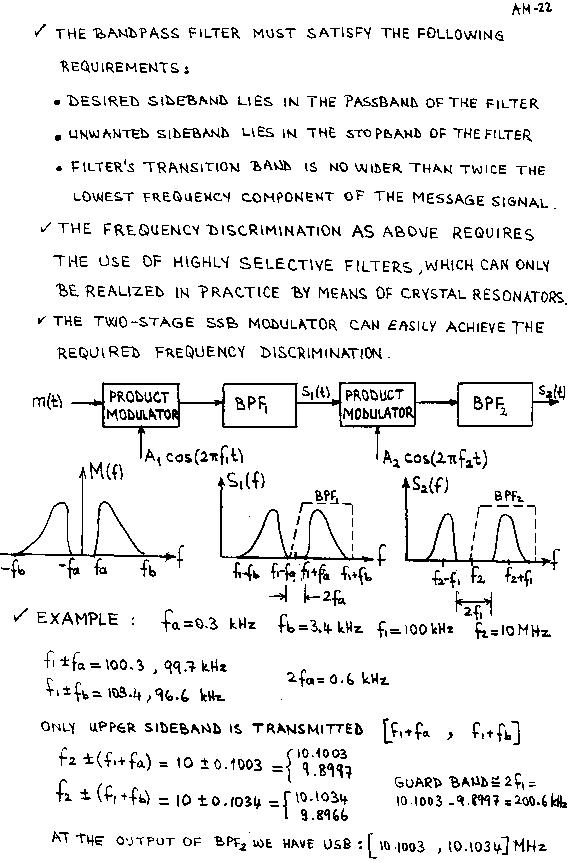 AM-22
✓ THE BANDPASS FILTER MUST SATISFY THE FOLLOWING
REQUIREMENTS:
• DESIRED SIDEBAND LIES IN THE PASSBAND OF THE FILTER
• UNWANTED SIDEBAND LIES IN THE STOPBAND OF THE FILTER
• FILTER'S TRANSITION BAND IS NO WIDER THAN TWICE THE
LOWEST FREQUENCY COMPONENT OF THE MESSAGE SIGNAL.
✓ THE FREQUENCY DISCRIMINATION AS ABOVE REQUIRES
THE USE OF HIGHLY SELECTIVE FILTERS, WHICH CAN ONLY
BE REALIZED IN PRACTICE BY MEANS OF CRYSTAL RESONATORS.
✓ THE TWO-STAGE SSB MODULATOR CAN EASILY ACHIEVE THE
REQUIRED FREQUENCY DISCRIMINATION.
m(t) PRODUCT MODULATOR BPF₁ S₁(t) PRODUCT MODULATOR BPF₂ S₂(t)
A₁ cos(2πf₁t) A₂ cos(2πf₂t)
M(f) S₁(f) BPF₁ S₂(f) BPF₂
-fb -fa fa fb f f₁-fb f₁-fa f₁+fa f₁+fb f f₂-f₁ f₂ f₂+f₁ f
2fa 2f₁
✓ EXAMPLE : fa=0.3 kHz fb=3.4 kHz f₁=100 kHz f₂=10 MHz
f₁ ± fa = 100.3 , 99.7 kHz
2fa = 0.6 kHz
f₁ ± fb = 103.4 , 96.6 kHz
ONLY UPPER SIDEBAND IS TRANSMITTED [f₁+fa , f₁+fb]
f₂ ± (f₁+fa) = 10 ± 0.1003 = { 10.1003
9.8997
f₂ ± (f₁+fb) = 10 ± 0.1034 = { 10.1034
9.8966
GUARD BAND ≅ 2f₁ =
10.1003 - 9.8997 = 200.6 kHz
AT THE OUTPUT OF BPF₂ WE HAVE USB : [10.1003 , 10.1034] MHz